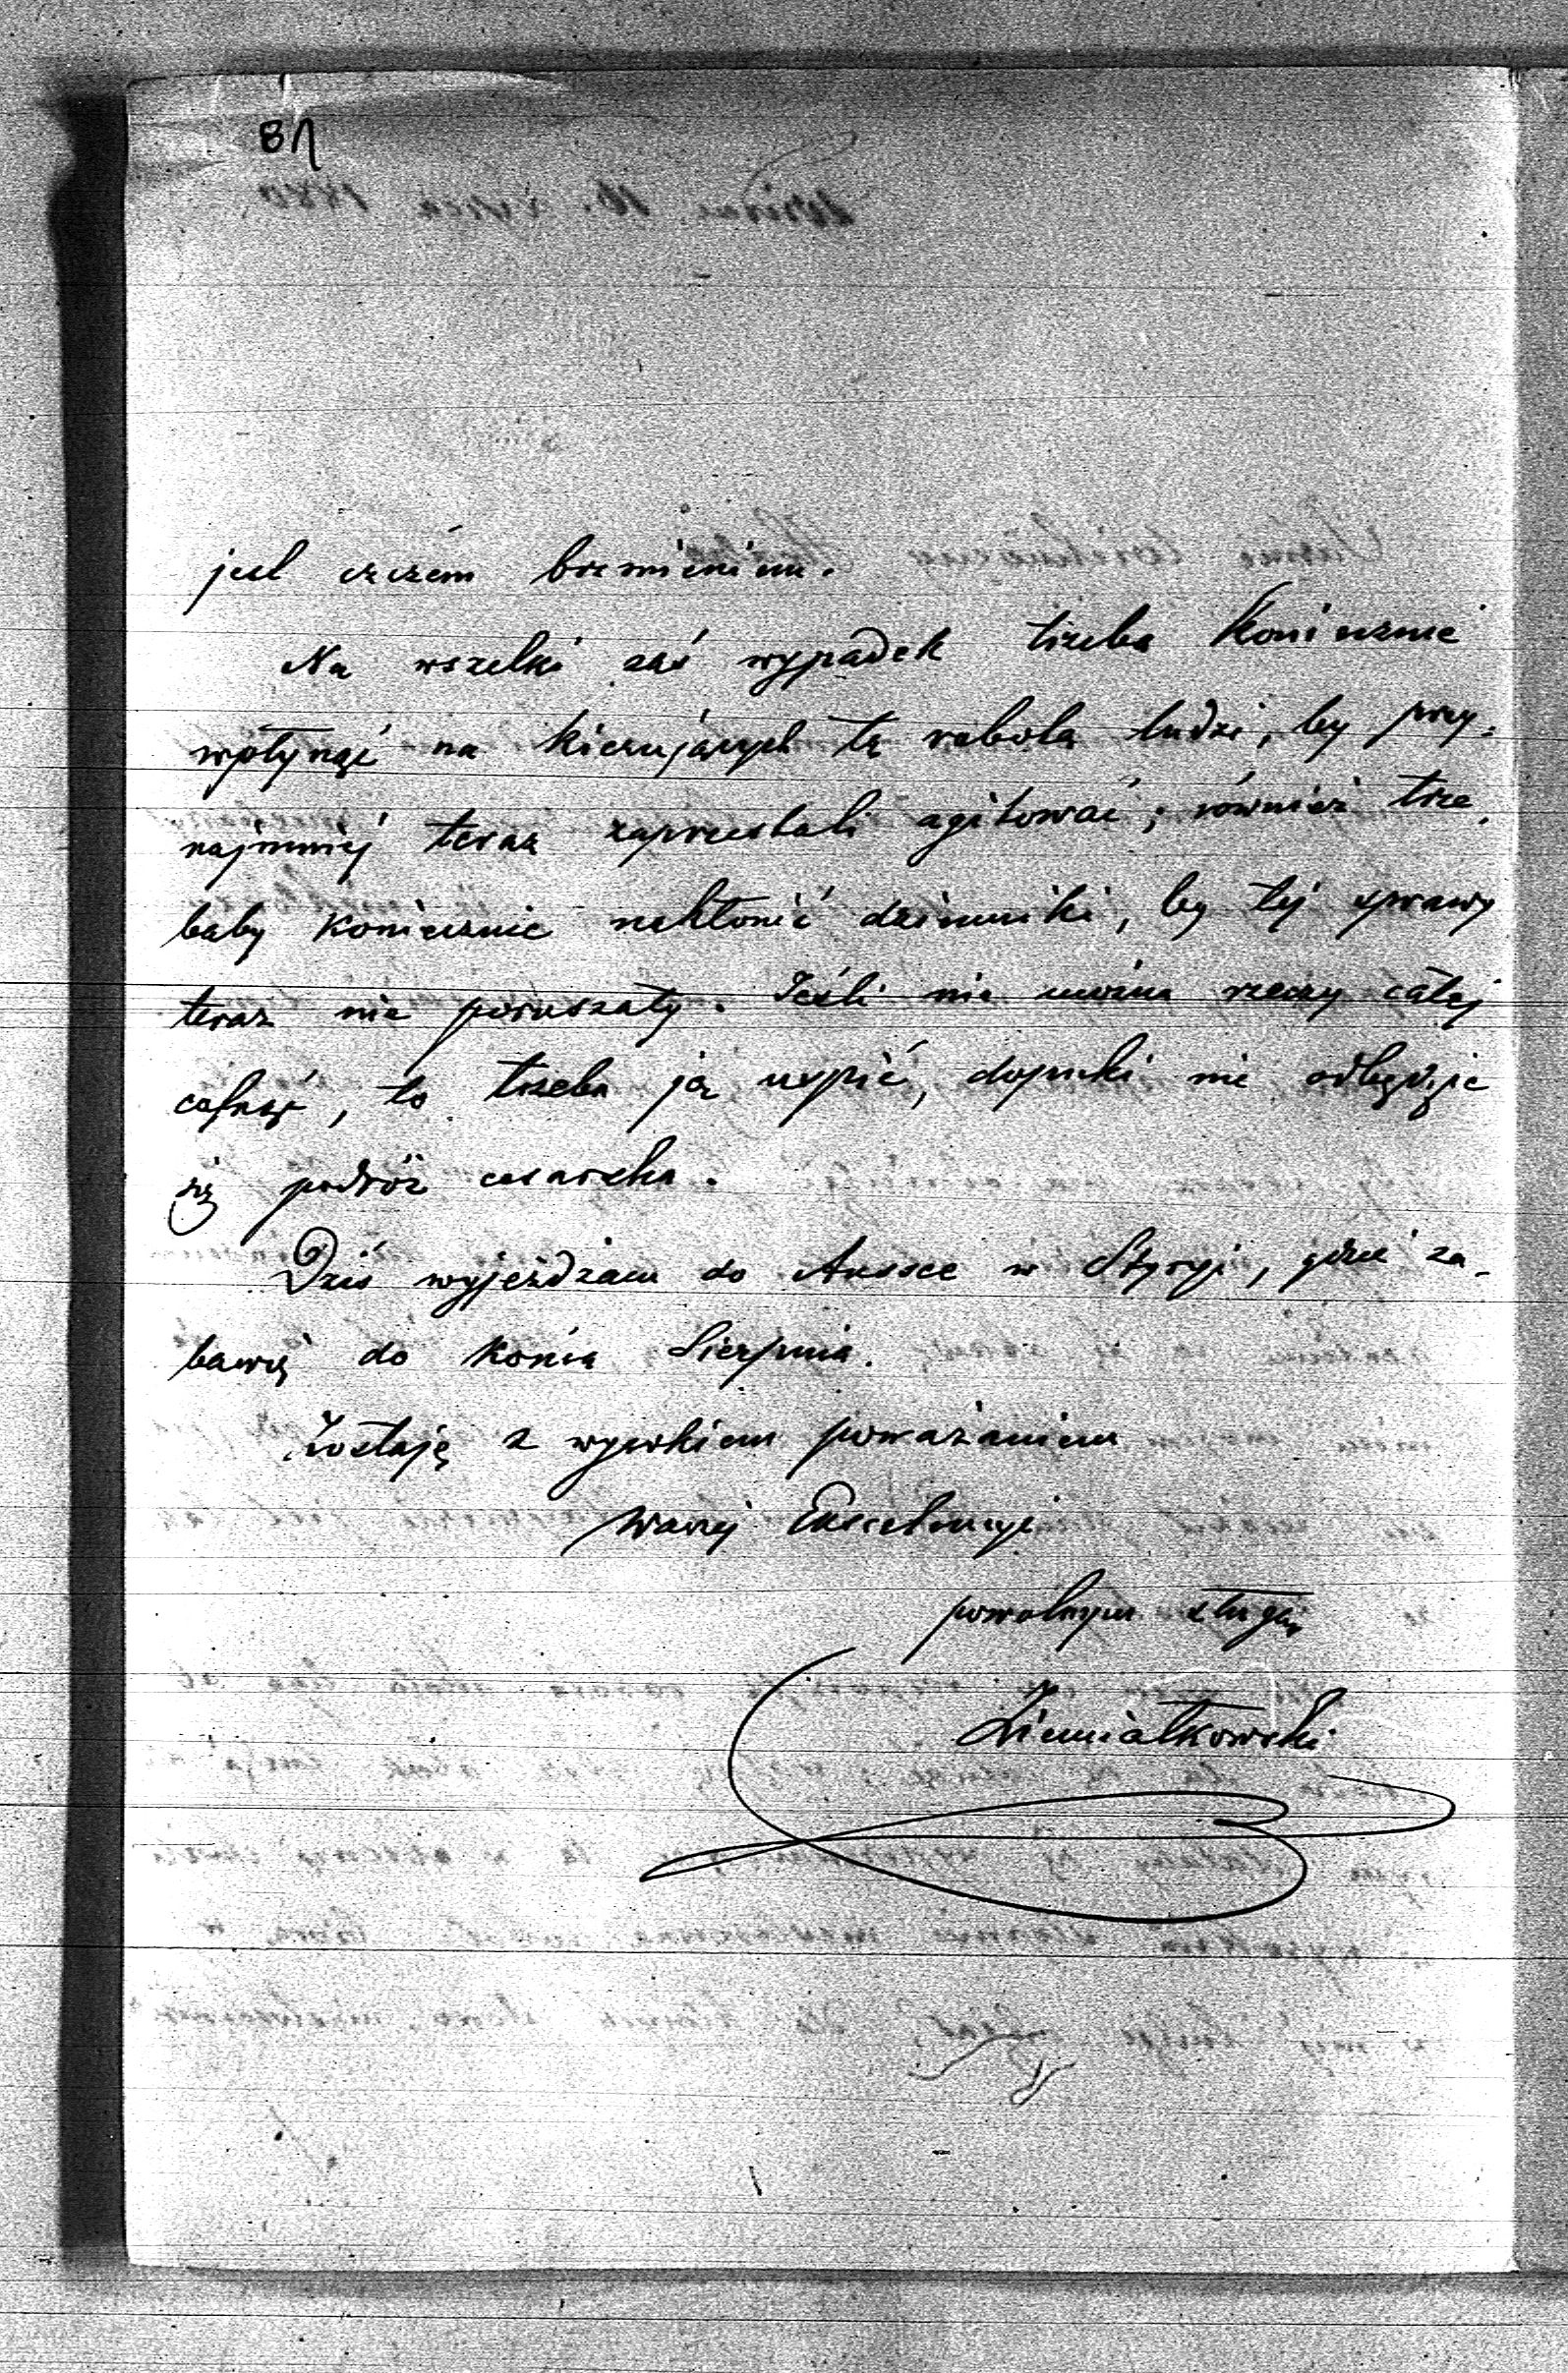 jest czczém brzmieniem.
Na wszelki zaś wypadek trzeba koniecznie
wpłynąć na kierujących tą robotą ludzi, by przy-
najmniéj teraz zaprzestali agitować; również trze-
baby koniecznie nakłonić dzienniki, by téj sprawy
teraz nie poruszały. Jeśli nie można rzeczy całéj
cofnąć, to trzeba ją uspić, dopuki nie odbędzie
się podróż cesarska.
Dziś wyjeżdżam do Aussee w Styryi, gdzie za-
bawię do końca Sierpnia.
Zostaję z wysokiem poważaniem
Waszéj Excelencyi
powolnym sługą
Ziemiałkowski